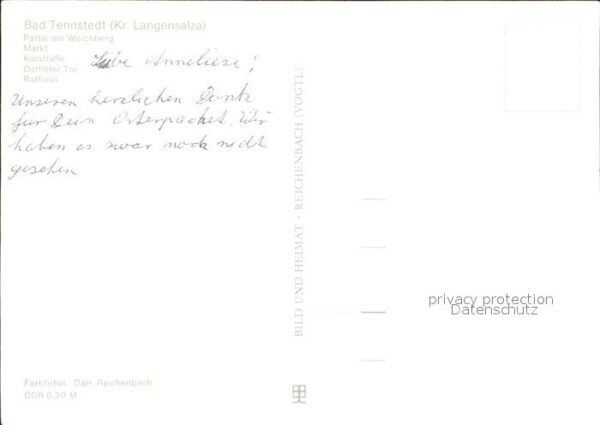 Bad Tennstedt (Kr. Langensalza)
Partie am Weichberg
Markt
Kurstraße
Osthöfer Tor
Rathaus
Liebe Anneliese!
Unseren herzlichen Dank
für Dein Osterpacket. Wir
haben es zwar noch nicht
gesehen
BILD UND HEIMAT · REICHENBACH (VOGTL)
privacy protection
Datenschutz
Farbfotos: Darr, Reichenbach
DDR 0,20 M